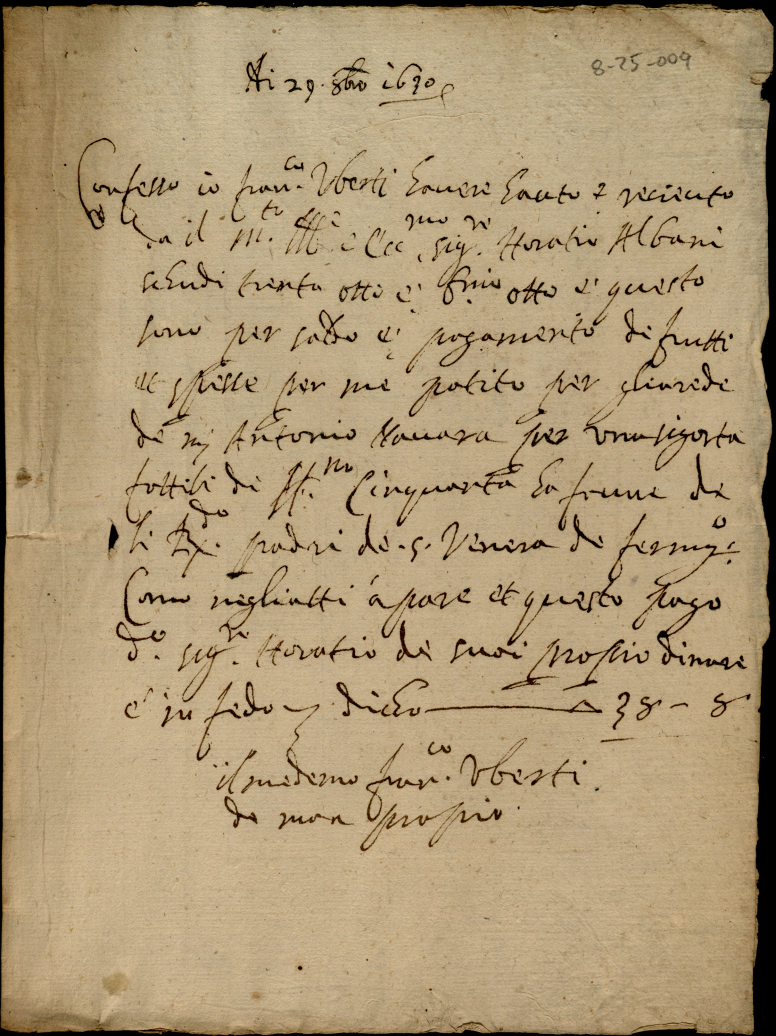 8-25-009
Ai 29. 8bro 1630
Confesso io fran.co Vberti hauere hauto e receuto
da il m.to Ill.e e Ecc.mo sig.re Horatio Albani
schudi trenta otto e b.ni otto e questo
sono per saldo e pagamento de frutti
et spesse per me patito per gleurede
de mj Antonio Nauara per una sigorta
fattili de di Cinquanta
li R.do padri de S. Venera de fermo
Como negliatti apare et questo pago
d.o sig.re Horatio de suoi proprio dinare
e in fedo dicho 38 - 8
il medemo fran.co Vberti.
de man proprio.